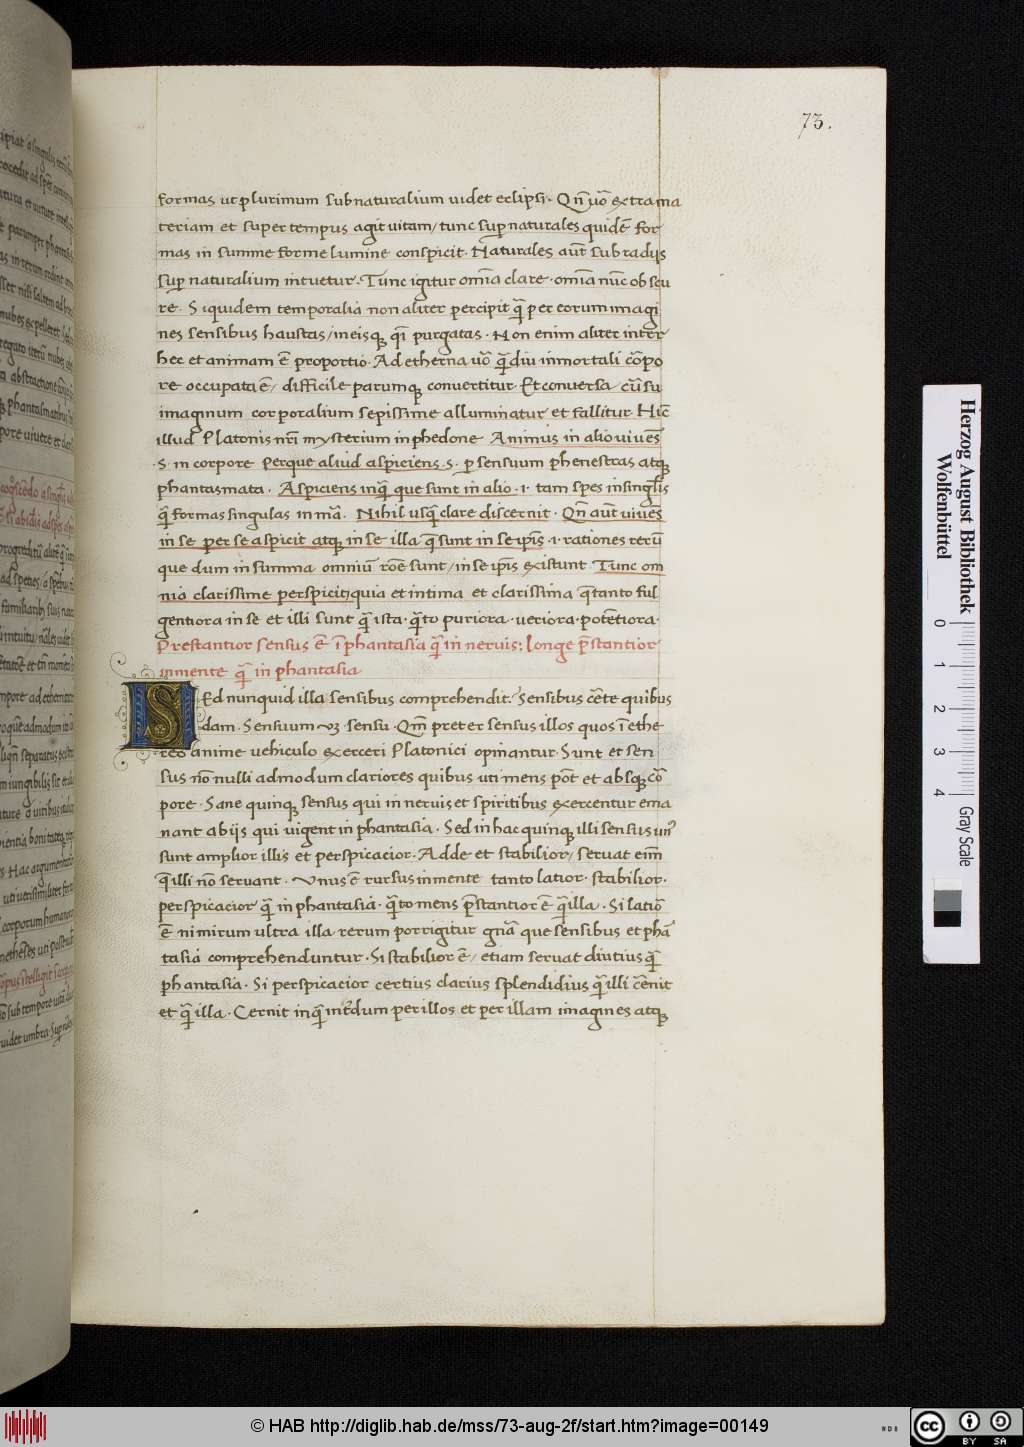 73.
formas ut plurimum sub naturalium uidet eclipsi. Qñ uõ extra ma
teriam et super tempus agit uitam/ tunc sup naturales quidẽ for
mas in summe forme lumine conspicit. Naturales aut̃ sub radijs
sup naturalium intuetur. Tunc igitur om̃ia clare. om̃ia nũc obscu
re. Siquidem temporalia non aliter percipit q̃ per eorum imagi
nes sensibus haustas/ in eisq; q̃i purgatas. Non enim aliter inter
hec et animam ẽ proportio. Ad etherna uõ q̃ diu inmortali cõpo
re occupata ẽ/ difficile parumq; conuertitur. Et conuersa/ cũ su
imaginum corporalium sepissime alluminatur/ et fallitur. Hic̃
illud Platonis nr̃i mysterium in phedone Animus in alio uiuẽs
.s. in corpore perque aliud aspiciens .s. p sensuum phenestras atq;
phantasmata. Aspiciens inq̃ que sunt in alio .i. tam spẽs in singl̃is
q̃ formas singulas in mã. Nihil usq̃ clare discernit. Qñ aut̃ uiuẽs
in se per se aspicit atq; in se illa q̃ sunt in se ip̃is .i. rationes rerũ
que dum in summa omniũ rõe sunt/ in se ip̃is existunt. Tunc om
nia clarissime perspicit/ quia et intima et clarissima q̃ tanto ful
gentiora in se et illi sunt q̃ ista. q̃to puriora. ueriora. potẽtiora.
Prestantior sensus ẽ ĩ phantasia q̃ in neruis: longe p̃stantior
in mente q̃ in phantasia
SEd nunquid illa sensibus comprehendit? Sensibus cẽte quibus
dam. Sensuum sensu. Qm̃ preter sensus illos quos ĩ ethe
reo anime uehiculo exerceri Platonici opinantur. Sunt et sen
sus nõ nulli admodum clariores quibus uti mens põt et absq; cõ
pore. Sane quinq; sensus qui in neruis et spiritibus exercentur ema
nant ab ijs qui uigent in phantasia. Sed in hac quinq; illi sensus un9
sunt amplior illis et perspicacior. Adde et stabilior/ seruat eim̃
q̃ illi nõ seruant. Vnus ẽ rursus in mente tanto latior. stabilior.
perspicacior q̃ in phantasia. q̃to mens p̃stantior ẽ q̃ illa. Si latior
ẽ nimirum ultra illa rerum porrigitur gñã que sensibus et phã
tasia comprehenduntur. Si stabilior ẽ/ etiam seruat diutius q̃
phantasia. Si perspicacior certius clarius splendidius q̃ illi cẽnit
et q̃ illa. Cernit inq̃ int̃dum per illos et per illam imagines atq;
Herzog August Bibliothek
Wolfenbüttel
0 1 2 3 4
Gray Scale
© HAB http://diglib.hab.de/mss/73-aug-2f/start.htm?image=00149
WDB
cc BY SA